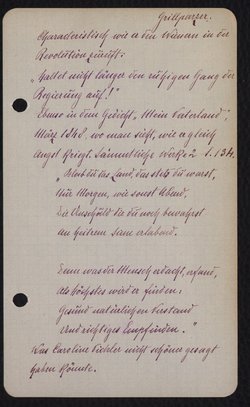 Grillparzer.
Charakteristisch wie er den Wienern in der
Revolution zuruft:
"Haltet nicht länger den ruhigen Gang der
Regierung auf!"
Ebenso in dem Gedicht "Mein Vaterland",
März 1848, wo man sieht, wie er gleich
Angst kriegt. Sämmtliche Werke 2 S. 134
"Bleib du das Land, das stets du warst,
Nur Morgen, wie sonst Abend,
Die Unschuld die du noch bewahrst
An heitrem Sinn erlabend.
Denn was der Mensch erdacht, erfand,
Als Höchstes wird er finden:
Gesund natürlichen Verstand
Und richtiges Empfinden."
Was Caroline Pichler nicht schöner gesagt
haben könnte.